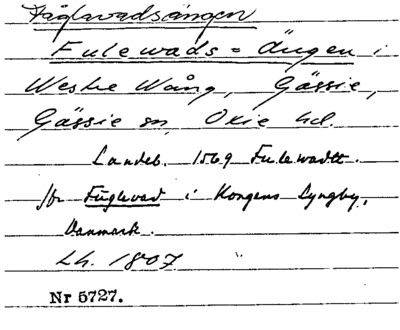 Fåglavadsängen
Fulewads = Ängen i
Westre Wång, Gässie,
Gässie sn, Oxie hd.
Landeb. 1569 Fulewadtt.
jfr Fuglevad i Kongens Lyngby,
Danmark.
Lh. 1807 "
Nr 5727.